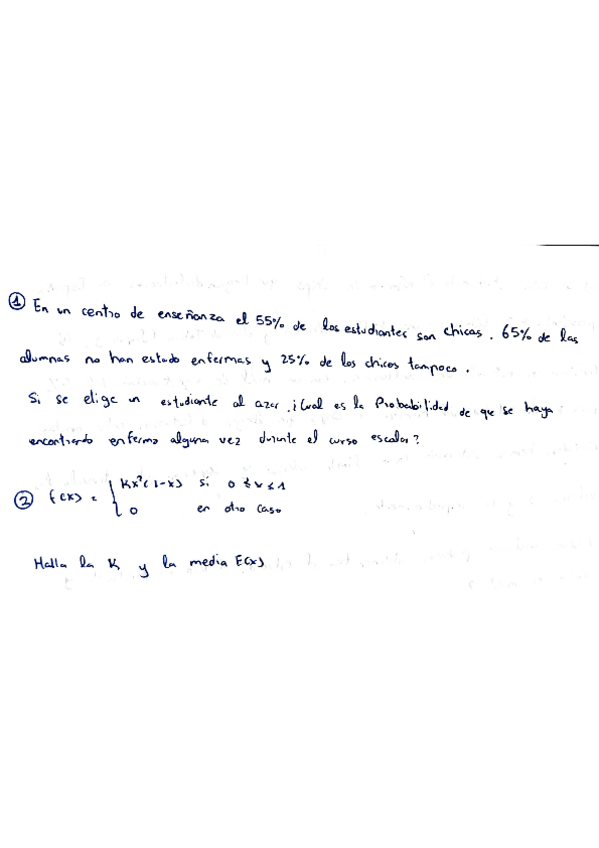 ① En un centro de enseñanza el 55% de los estudiantes son chicas. 65% de las
alumnas no han estado enfermas y 25% de los chicos tampoco.
Si se elige un estudiante al azar ¿Cual es la Probabilidad de que se haya
encontrado enfermo alguna vez durante el curso escolar?
② f(x) = { Kx²(1-x) si 0 ≤ x ≤ 1
0 en otro caso
Halla la K y la media E(x)